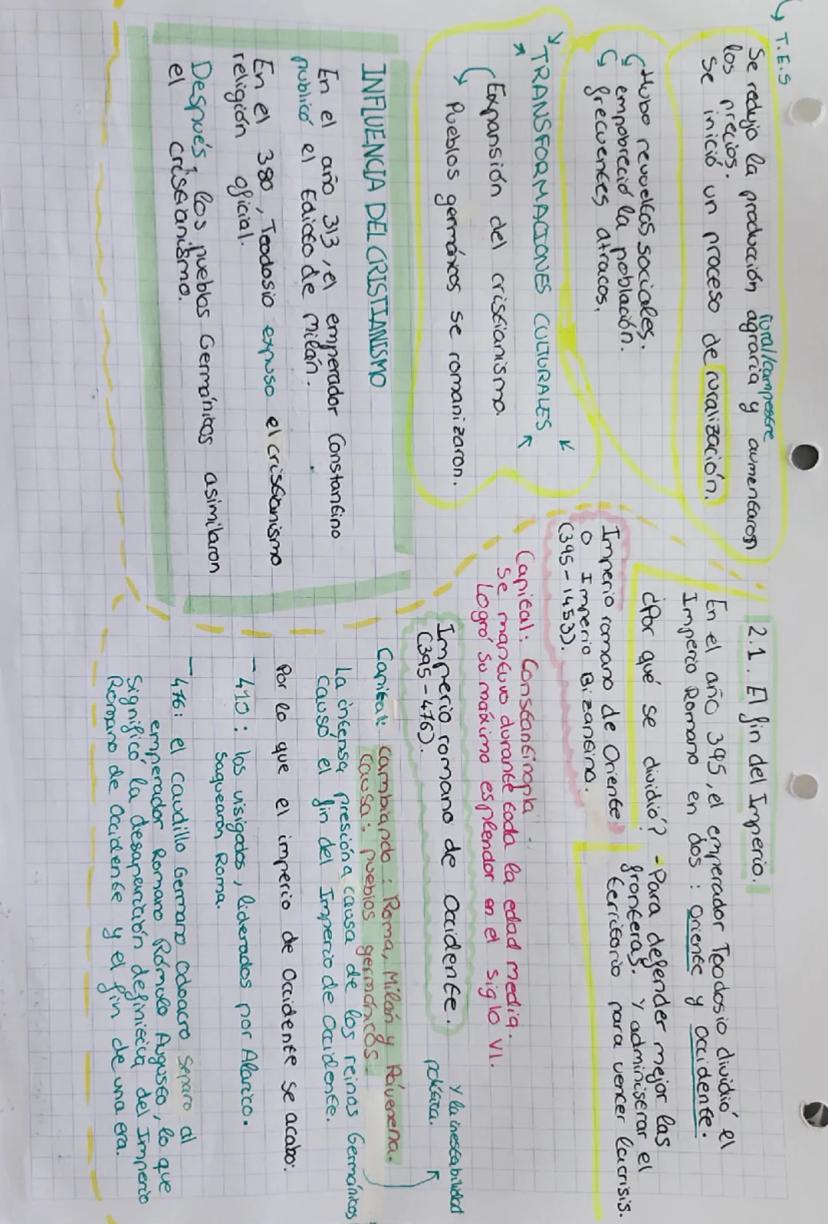 T.E.S
Se redujo la producción agraria y aumentaron
los precios. rural/campestre
Se inició un proceso de ruralización.
Hubo revueltas sociales.
empobreció la población.
frecuentes atracos.
TRANSFORMACIONES CULTURALES
Expansión del cristianismo.
Pueblos germánicos se romanizaron.
INFLUENCIA DEL CRISTIANISMO
En el año 313, el emperador Constantino
publicó el Edicto de Milán.
En el 380, Teodosio expuso el cristianismo
religión oficial.
Después, los pueblos Germánicos asimilaron
el cristianismo.
2.1. El fin del Imperio.
En el año 395, el emperador Teodosio dividió el
Imperio Romano en dos: Oriente y Occidente.
¿Por qué se dividió? - Para defender mejor las
fronteras. Y administrar el
territorio para vencer la crisis.
Imperio romano de Oriente
o Imperio Bizantino.
(395-1453).
Capital: Constantinopla.
Se mantuvo durante toda la edad media.
Logró su máximo esplendor en el siglo VI.
Imperio romano de Occidente.
(395-476).
Capital: Cambiando: Roma, Milán y Rávenena.
Causa: pueblos germánicos
y la inestabilidad
política.
La intensa presión a causa de los reinos Germánicos
causó el fin del Imperio de Occidente.
Por lo que el imperio de Occidente se acabo:
- 410: los visigodos, liderados por Alarico.
Saquearon Roma.
- 476: el caudillo Germano Odoacro separo al
emperador Romano Rómulo Augusto, lo que
significó la desaparición definitiva del Imperio
Romano de Occidente y el fin de una era.